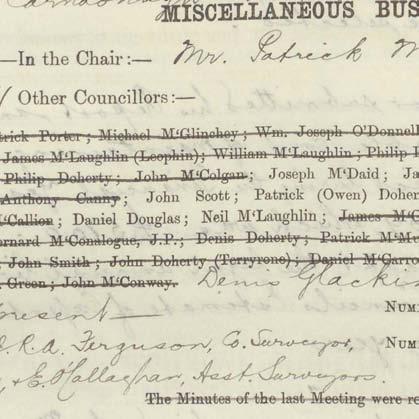 MISCELLANEOUS BUS
—In the Chair:— Mr. Patrick M
Other Councillors:—
trick Porter; Michael M'Glinchey; Wm. Joseph O'Donnell
James M'Laughlin (Leophin); William M'Laughlin; Philip
Philip Doherty; John M'Colgan; Joseph M'Daid; Ja
Anthony Canny; John Scott; Patrick (Owen) Doher
M'Callion; Daniel Douglas; Neil M'Laughlin; James M'G
ernard M'Conalogue, J.P.; Denis Doherty; Patrick M'M
John Smith; John Doherty (Terryrone); Daniel M'Carro
Green; John M'Conway. Denis Glackin
present— NUM
J. R. A. Ferguson, Co. Surveyor, NUM
& E. O'Callaghan, Asst. Surveyors.
The Minutes of the last Meeting were